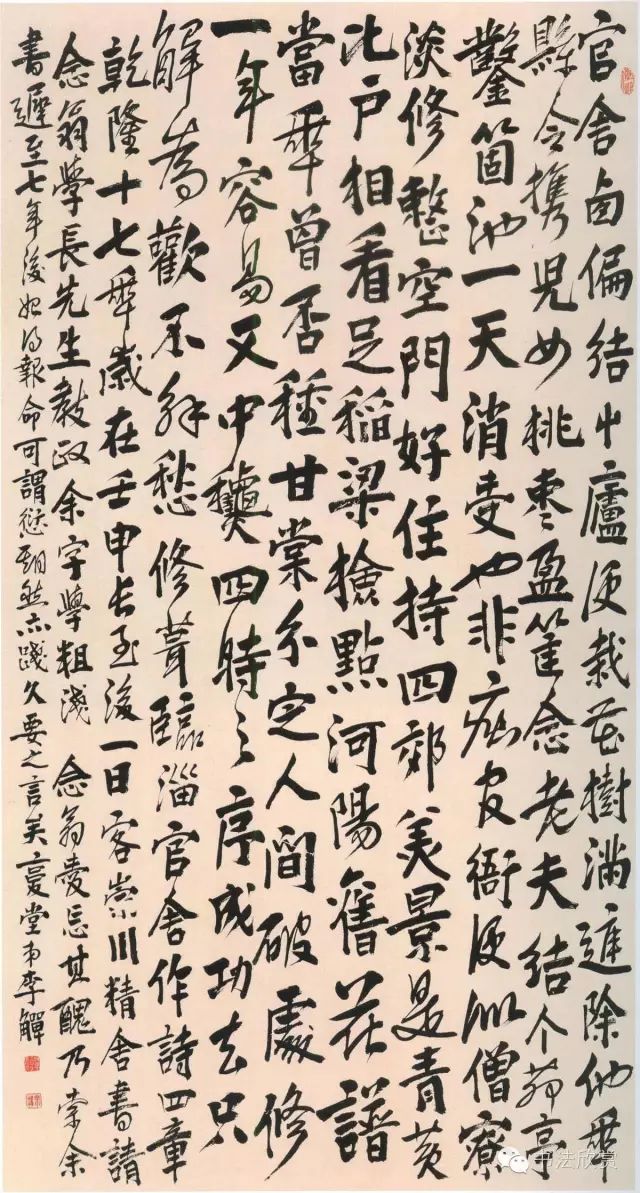 官舍卤偏結屮廬便栽花樹滿庭除他年
縣令携兒女桃棗盈筐念老夫結个茆亭
鑿箇池一天消受也非癡官衙便似僧寮
淡修整空門好住持四郊美景是青黄
比户相看足稻粱檢點河陽舊花譜
當年曾否種甘棠分定人間破處修
一年容易又中穐四時之序成功去只
解為歡不解愁修葺臨淄官舍作詩四章
乾隆十七年歲在壬申長至後一日客崇川精舍書請
念翁學長先生教政余字學粗淺念翁愛忘其醜乃索余
書遲至七年後始得報命可謂愆期然亦踐久要之言矣復堂弟李鱓
书法欣赏